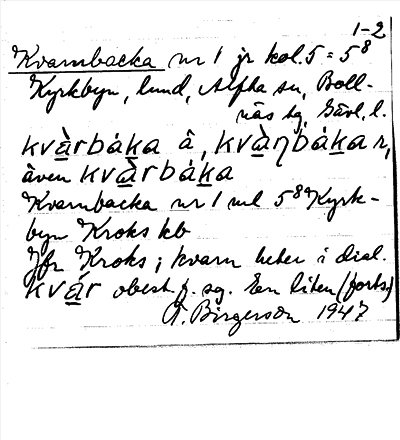 1-2
Kvarnbacka nr 1 jr kol. 5 = 5⁸
Kyrkbyn, lund, Alfta sn, Boll-
näs tg, Gävl. l.
kvàrbáka â, kvàηbáka r,
även kvàrbáka
Kvarnbacka nr 1 ml 5⁸ Kyrk-
byn Kroks kb
Jfr Kroks; kvarn heter i dial.
kvár obest. f. sg. En liten (forts.)
A. Birgerson 1947